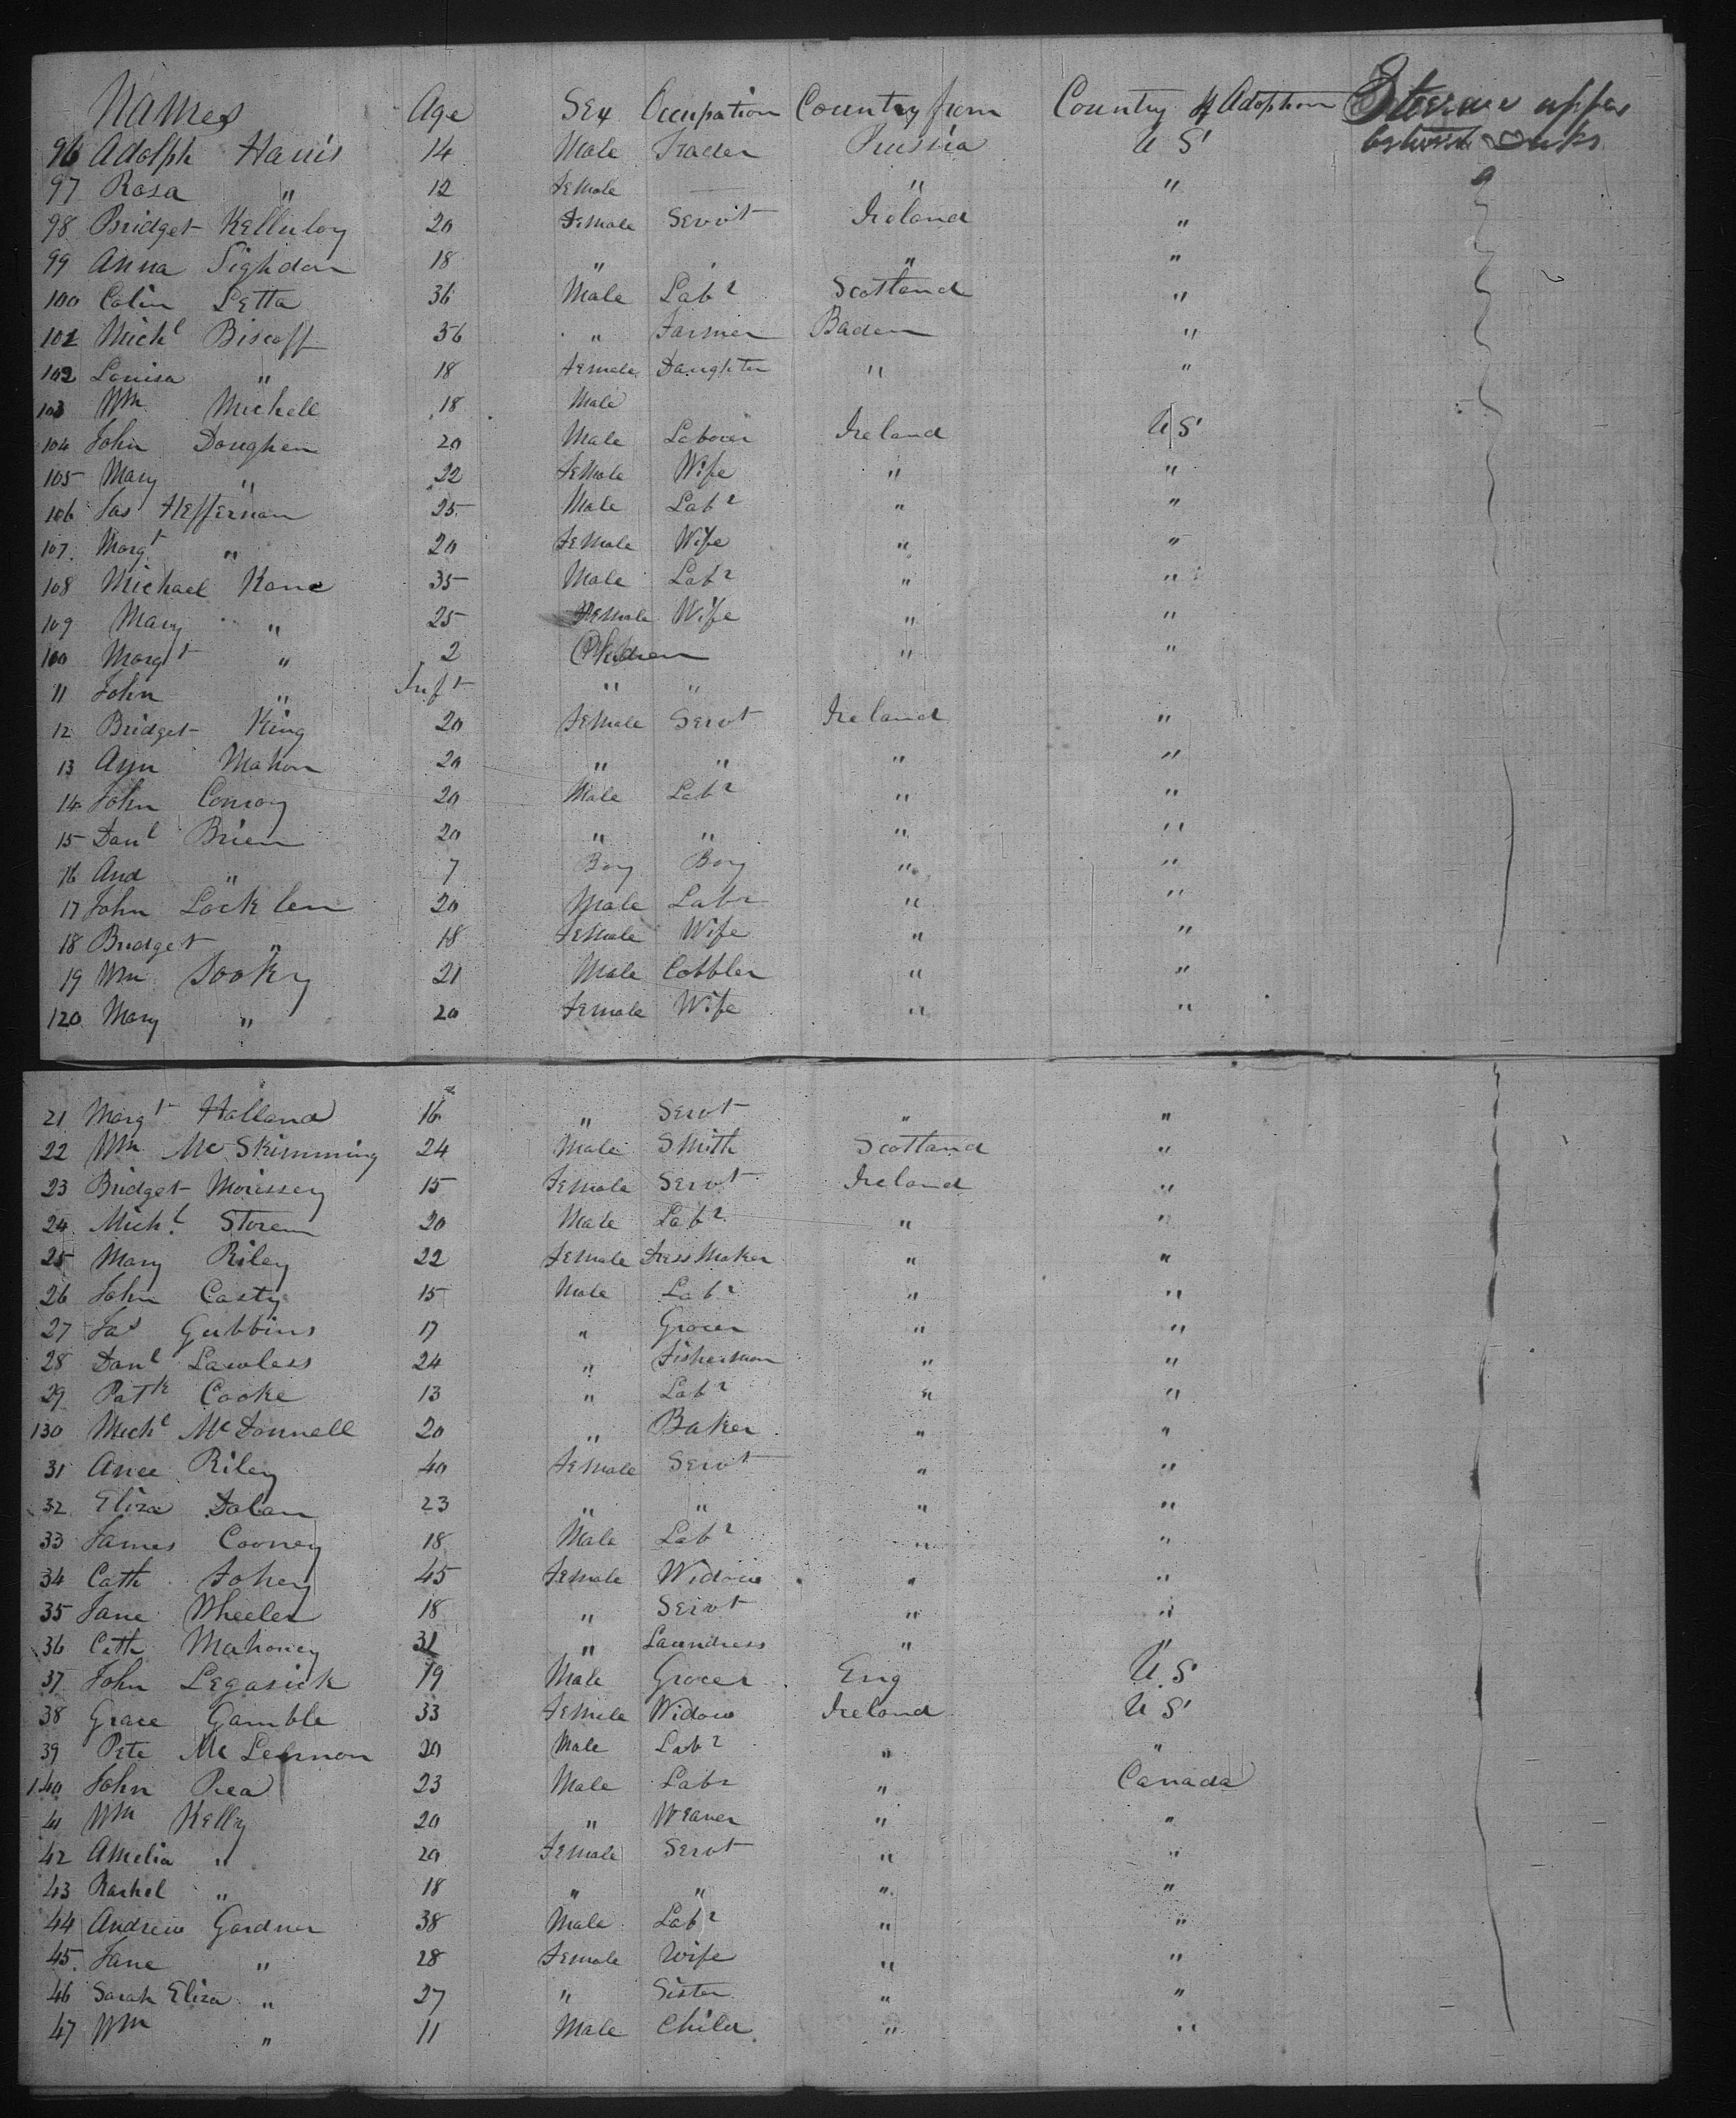 Names Age Sex Occupation Country from Country of Adoption Steerage upper
between Decks
96 Adolph Harris 14 Male Trader Russia U S
97 Rosa " 12 Female — " "
98 Bridget 20 Female Servt Ireland "
99 Anna 18 " " " "
100 Colin Letta 36 Male Labr Scotland "
101 Michl Biscoff 36 " Farmer Baden "
102 Louisa " 18 Female Daughter " "
103 Wm Michell 18 Male
104 John Doughen 20 Male Labour Ireland U S
105 Mary " 22 Female Wife " "
106 Jas Heffernan 25 Male Labr " "
107 Margt " 20 Female Wife " "
108 Michael Kane 35 Male Labr " "
109 Mary " 25 Female Wife " "
100 Margt " 2 Children " "
11 John " Inft " "
12 Bridget King 20 Female Servt Ireland "
13 Ann Mahon 20 " " " "
14 John Conroy 20 Male Labr " "
15 Danl Brien 20 " " " "
16 And " 7 Boy Boy " "
17 John Locklen 20 Male Labr " "
18 Bridget " 18 Female Wife " "
19 Wm Sooky 21 Male Cobbler " "
120 Mary " 20 Female Wife " "
21 Margt Holland 16 " Servt " "
22 Wm McSkimming 24 Male Smith Scotland "
23 Bridget Morissey 15 Female Servt Ireland "
24 Michl Storen 20 Male Labr " "
25 Mary Riley 22 Female Dress Maker " "
26 John Casty 15 Male Labr " "
27 Jas Gubbins 17 " Grocer " "
28 Danl Lawless 24 " Fisherman " "
29 Patk Cooke 13 " Labr " "
130 Michl McDonnell 20 " Baker " "
31 Anee Riley 40 Female Servt " "
32 Eliza Dolan 23 " " " "
33 James Cooney 18 Male Labr " "
34 Cath Fohey 45 Female Widow " "
35 Jane Wheeler 18 " Servt " "
36 Cath Mahoney 31 " Laundress " "
37 John Legasick 19 Male Grocer Eng U.S
38 Grace Gamble 33 Female Widow Ireland U S
39 Pete McLennon 20 Male Labr " "
140 John Rea 23 Male Labr " Canada
41 Wm Kelly 20 " Weaver " "
42 Amelia " 20 Female Servt " "
43 Rachel " 18 " " " "
44 Andrew Gardner 38 Male Labr " "
45 Jane " 28 Female Wife " "
46 Sarah Eliza " 27 " Sister " "
47 Wm " 11 Male Child " "